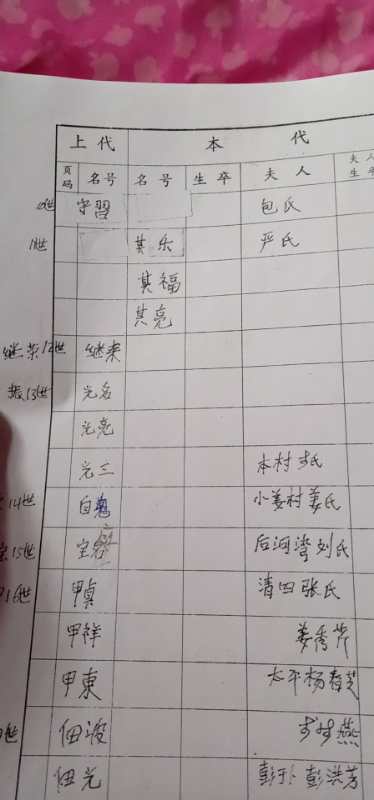 上代 本代
页码 名号 名号 生卒 夫人 夫人生卒
世 守習 包氏
11世 其乐 严氏
其福
其亮
继荣12世 继来
振13世 光名
光亮
光三 本村 氏
14世 自 小姜村姜氏
15世 宝 后河湾刘氏
16世 甲贞 清四张氏
甲祥 姜秀芹
甲東 太平杨春芝
世 佃波 燕
佃光 彭于 彭洪芳